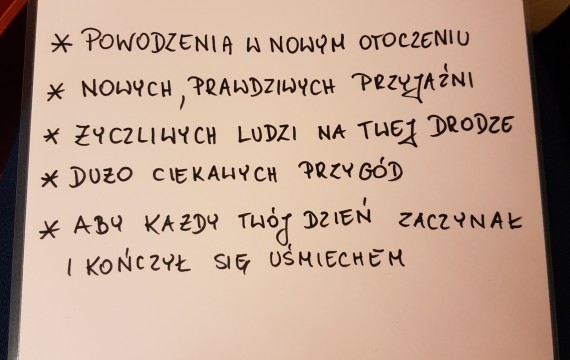 * POWODZENIA W NOWYM OTOCZENIU
* NOWYCH, PRAWDZIWYCH PRZYJAŹNI
* ŻYCZLIWYCH LUDZI NA TWEJ DRODZE
* DUŻO CIEKAWYCH PRZYGÓD
* ABY KAŻDY TWÓJ DZIEŃ ZACZYNAŁ
I KOŃCZYŁ SIĘ UŚMIECHEM